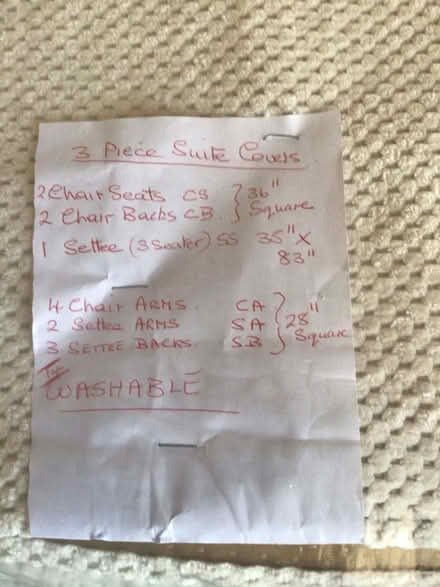 3 Piece Suite Covers
2 Chair Seats CS } 36"
2 Chair Backs CB } Square
1 Settee (3 Seater) SS 35" X
83"
4 Chair ARMS. CA } 28"
2 Settee ARMS SA } Square
3 SETTEE BACKS. SB }
WASHABLE